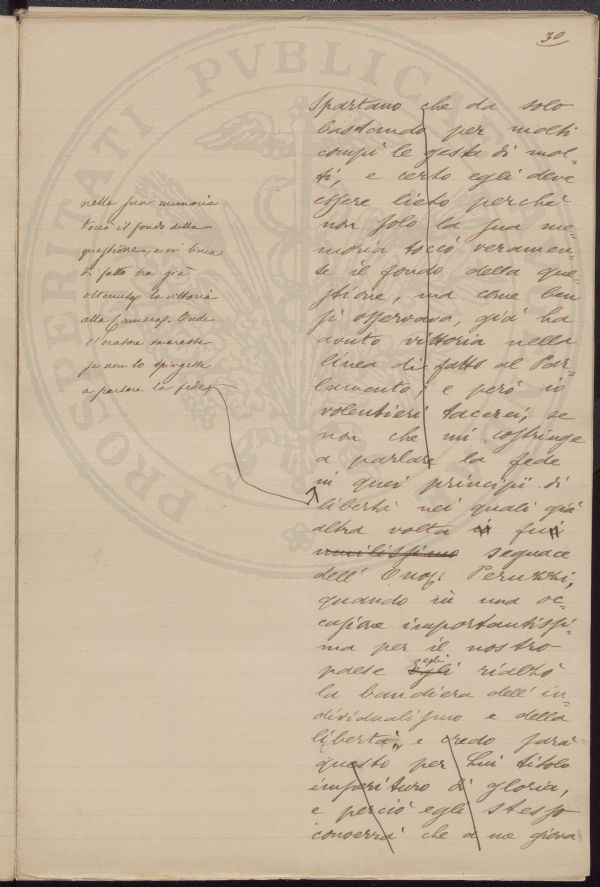 30
Spartano che da solo
bastando per molti
compì le gesta di mol-
ti, e certo egli deve
essere lieto perchè
non solo la sua me-
moria toccò veramen-
te il fondo della que-
stione, ma come ben
si osservava, già ha
avuto vittoria nella
linea di fatto al Par-
lamento; e però io
volentieri tacerei, se
non che mi costringe
a parlare la fede
in quei principii di
libertà nei quali già
altra volta fui
umilissimo seguace
dell' Onor. Peruzzi,
quando in una oc-
casione importantissi-
ma per il nostro
paese egli rialzò
la bandiera dell' in-
dividualismo e della
libertà, e credo sarà
questo per Lui titolo
imperituro di gloria,
e perciò egli stesso
converrà che a me giova
nella sua memoria
toccò il fondo della
questione, e in linea
di fatto ha già
ottenuto la vittoria
alla Camera. Onde
l'oratore tacerebbe
se non lo spingesse
a parlare la fede
PROSPERITATI PVBLICAE